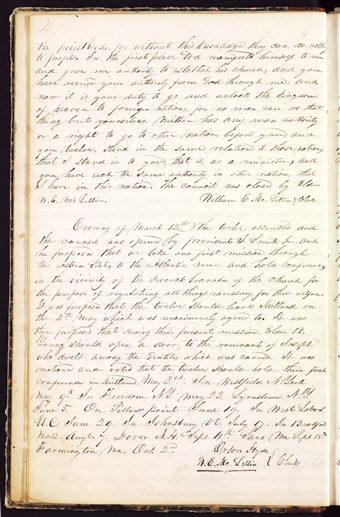 4
the priesthood, for without this knowledge they can do noth
to profit. In the first place God manifested himself to me
and gave me authority to establish his church, and you
have received your authority from God through me; and
now it is your duty to go and unlock the kingdom
of heaven to foreign nations, for no man can do that
thing but yourselves. Neither has any man authority
or a right to go to other nations before you; and
you, twelve, stand in the same relation to those nations
that I stand in to you, that is, as a minister; and
you have each the same authority in other nations that
I have in this nation. The council was closed by Elder
W. E. McLellin. William E. McLellin, Clerk
Evening of March 12th, the twelve assembled and
the council was opened by president J. Smith Jr. and
he proposed that we take our first mission through
the eastern States to the Atlantic Ocean and hold conferences
in the vicinity of the several branches of the Church for
the purpose of regulating all things necessary for their welfare.
It was proposed that the twelve leave Kirtland on
the 4th May which was unanimously agreed to. It was
then proposed that during their present mission Elder B.
Young should open a door to the remnant of Joseph
who dwell among the Gentiles which was carried. It was
motioned and voted that the twelve should hold their first
conference in Kirtland, May 2nd. In Westfield N. York
May 9. In Freedom N.Y. May 22. Lyonstown N.Y.
June 5. On Pillow Point June 19. In West Loboro
U.C. June 29. In Johnsbury Vt. July 17. In Bradford
Mass. Augt. 7. Dover N.H. Sept. 4th. Saco Me. Sept. 18th
Farmington Me. Oct. 2d. Orson Hyde
W. E. McLellin } Clerks